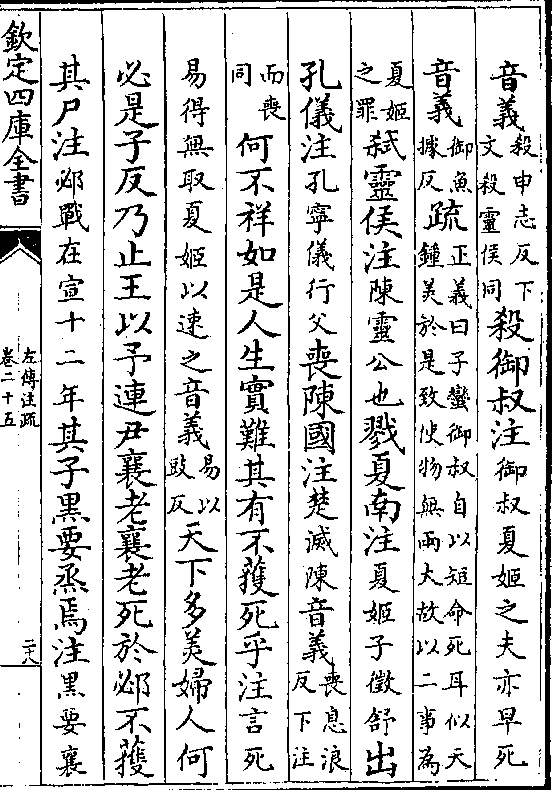 音義殺申志反下文殺靈侯同殺御叔注御叔夏姬之夫亦早死
音義御魚據反疏正義曰子蠻御叔自以短命死耳似天鍾美於是致使物無兩大故以二事為
夏姬之罪弑靈侯注陳靈公也戮夏南注夏姬子徵舒出
孔儀注孔寧儀行父喪陳國注楚滅陳音義喪息浪反下注
而喪同何不祥如是人生實難其有不獲死乎注言死
易得無取夏姬以速之音義易以䜴反天下多美婦人何
必是子反乃止王以予連尹襄老襄老死於邲不獲
其尸注邲戰在宣十二年其子黑要烝焉注黑要襄
欽定四庫全書
左傳注疏
卷二十五
二八